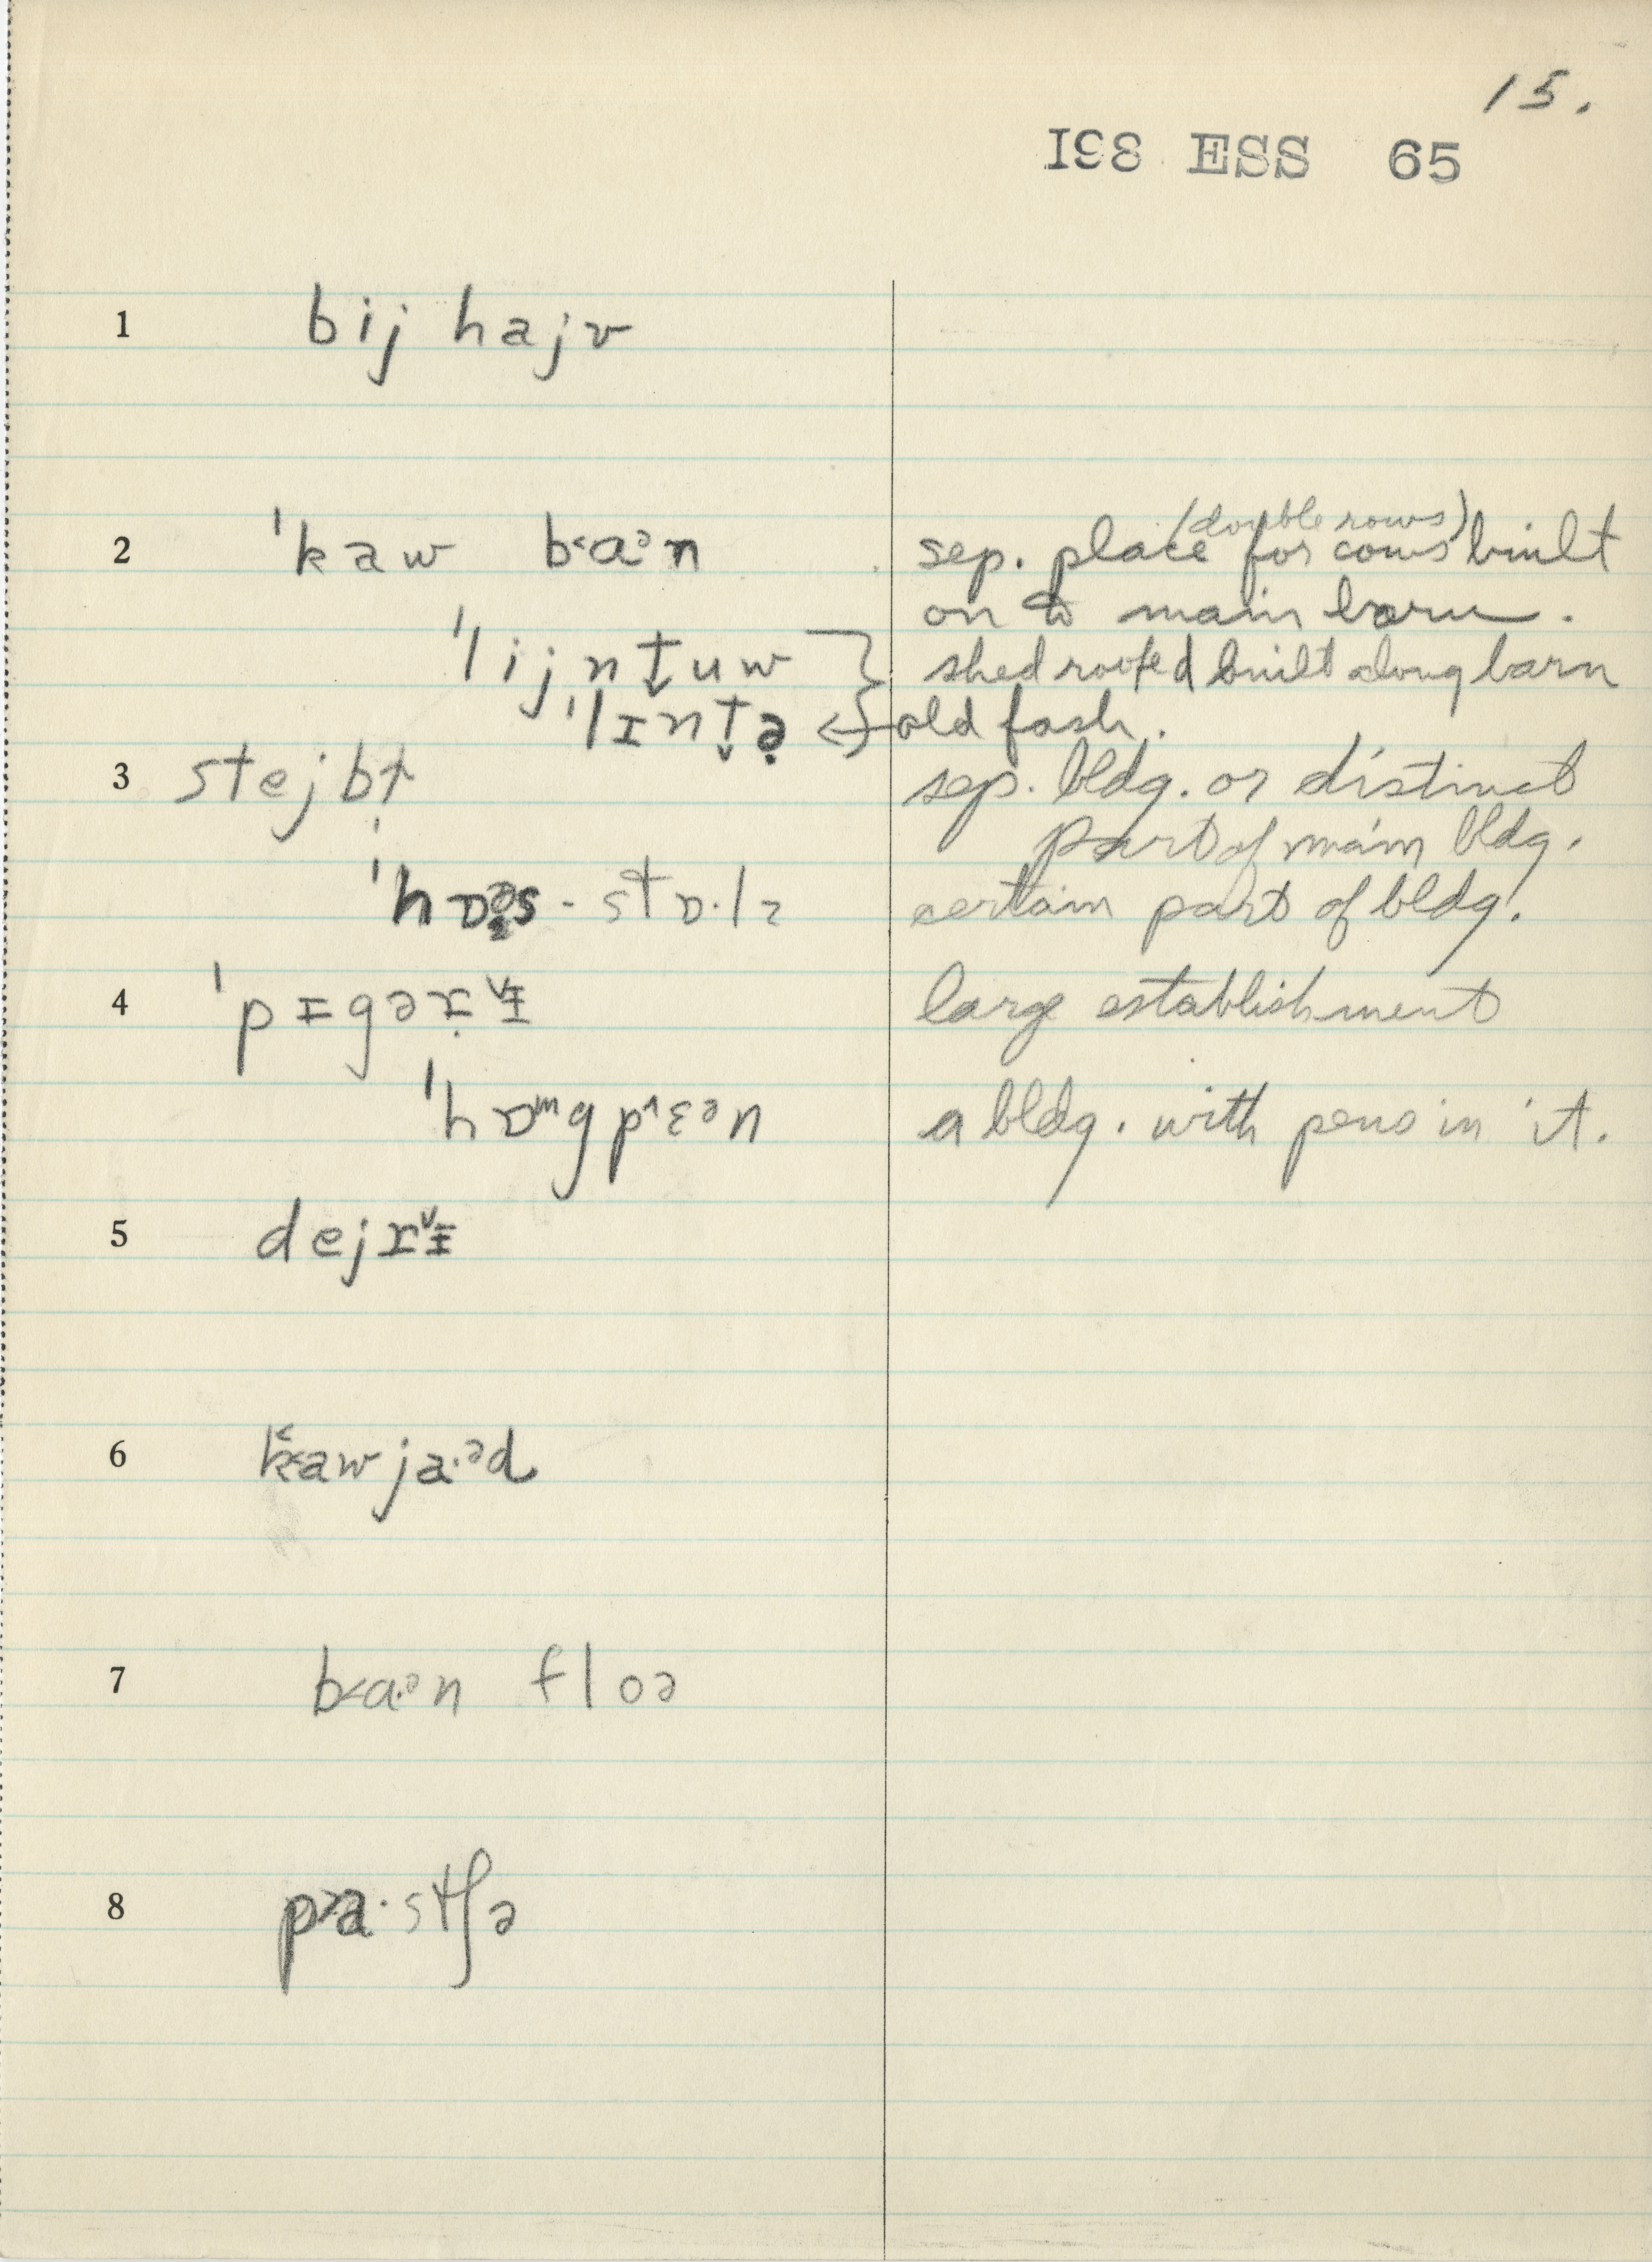 15.
198 ESS 65
1 bij hajv
2 ˈkaw b˂aᵊn sep. place for cows (double rows) built
on to main barn.
ˈlijnt̬uw } shed roofed built along barn
ˈlɪnt̬ə̣ ← } old fash.
3 stejbɫ̩ sep. bldg. or distinct
part of main bldg.
ˈhɒəs-stɒ·lz certain part of bldg.
4 ˈpɪgəɹ̣ᵛɨ large establishment
ˈhɒᵚgp^ɛᵊn a bldg. with pens in it.
5 dejɹᵛɨ
6 k̆˂awja·ᵊd
7 b˂a·ᵊn floə
8 p˃a·stʃə